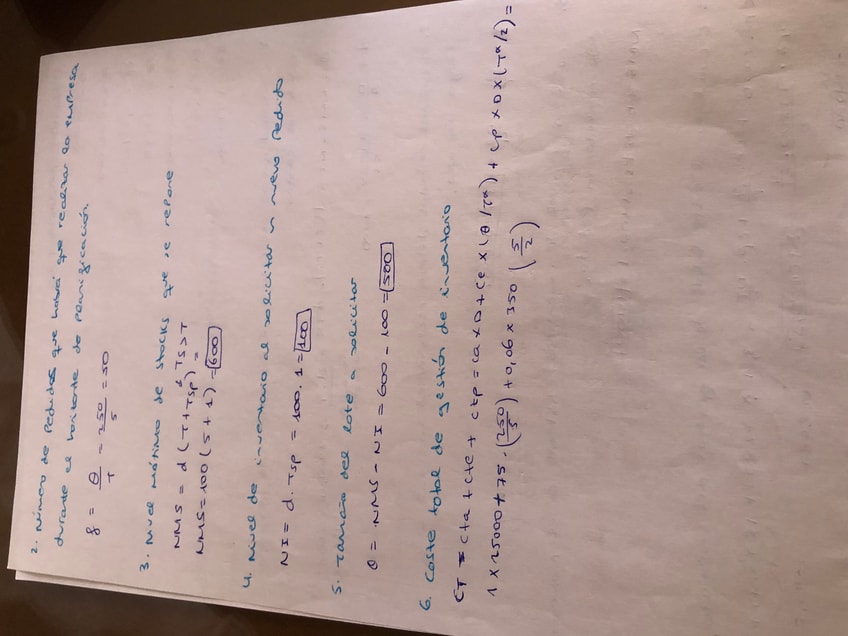 2. Número de Pedidos que habrá que realizar la empresa
durante el horizonte de planificación.
g = θ/T = 250/5 = 50
3. Nivel máximo de stocks que se repone
NMS = d (T + TSP) TS>T
NMS = 100 (5 + 1) = 600
4. Nivel de inventario al solicitar un nuevo Pedido
NI = d · TSP = 100 · 1 = 100
5. Tamaño del lote a solicitar
θ = NMS - NI = 600 - 100 = 500
6. Coste total de gestión de inventario
CT = cta + cte + ctp = ca x D + ce x (θ/T*) + cp x D x (T*/2) =
1 x 25000 + 75 · (250/5) + 0,06 x 350 (5/2)